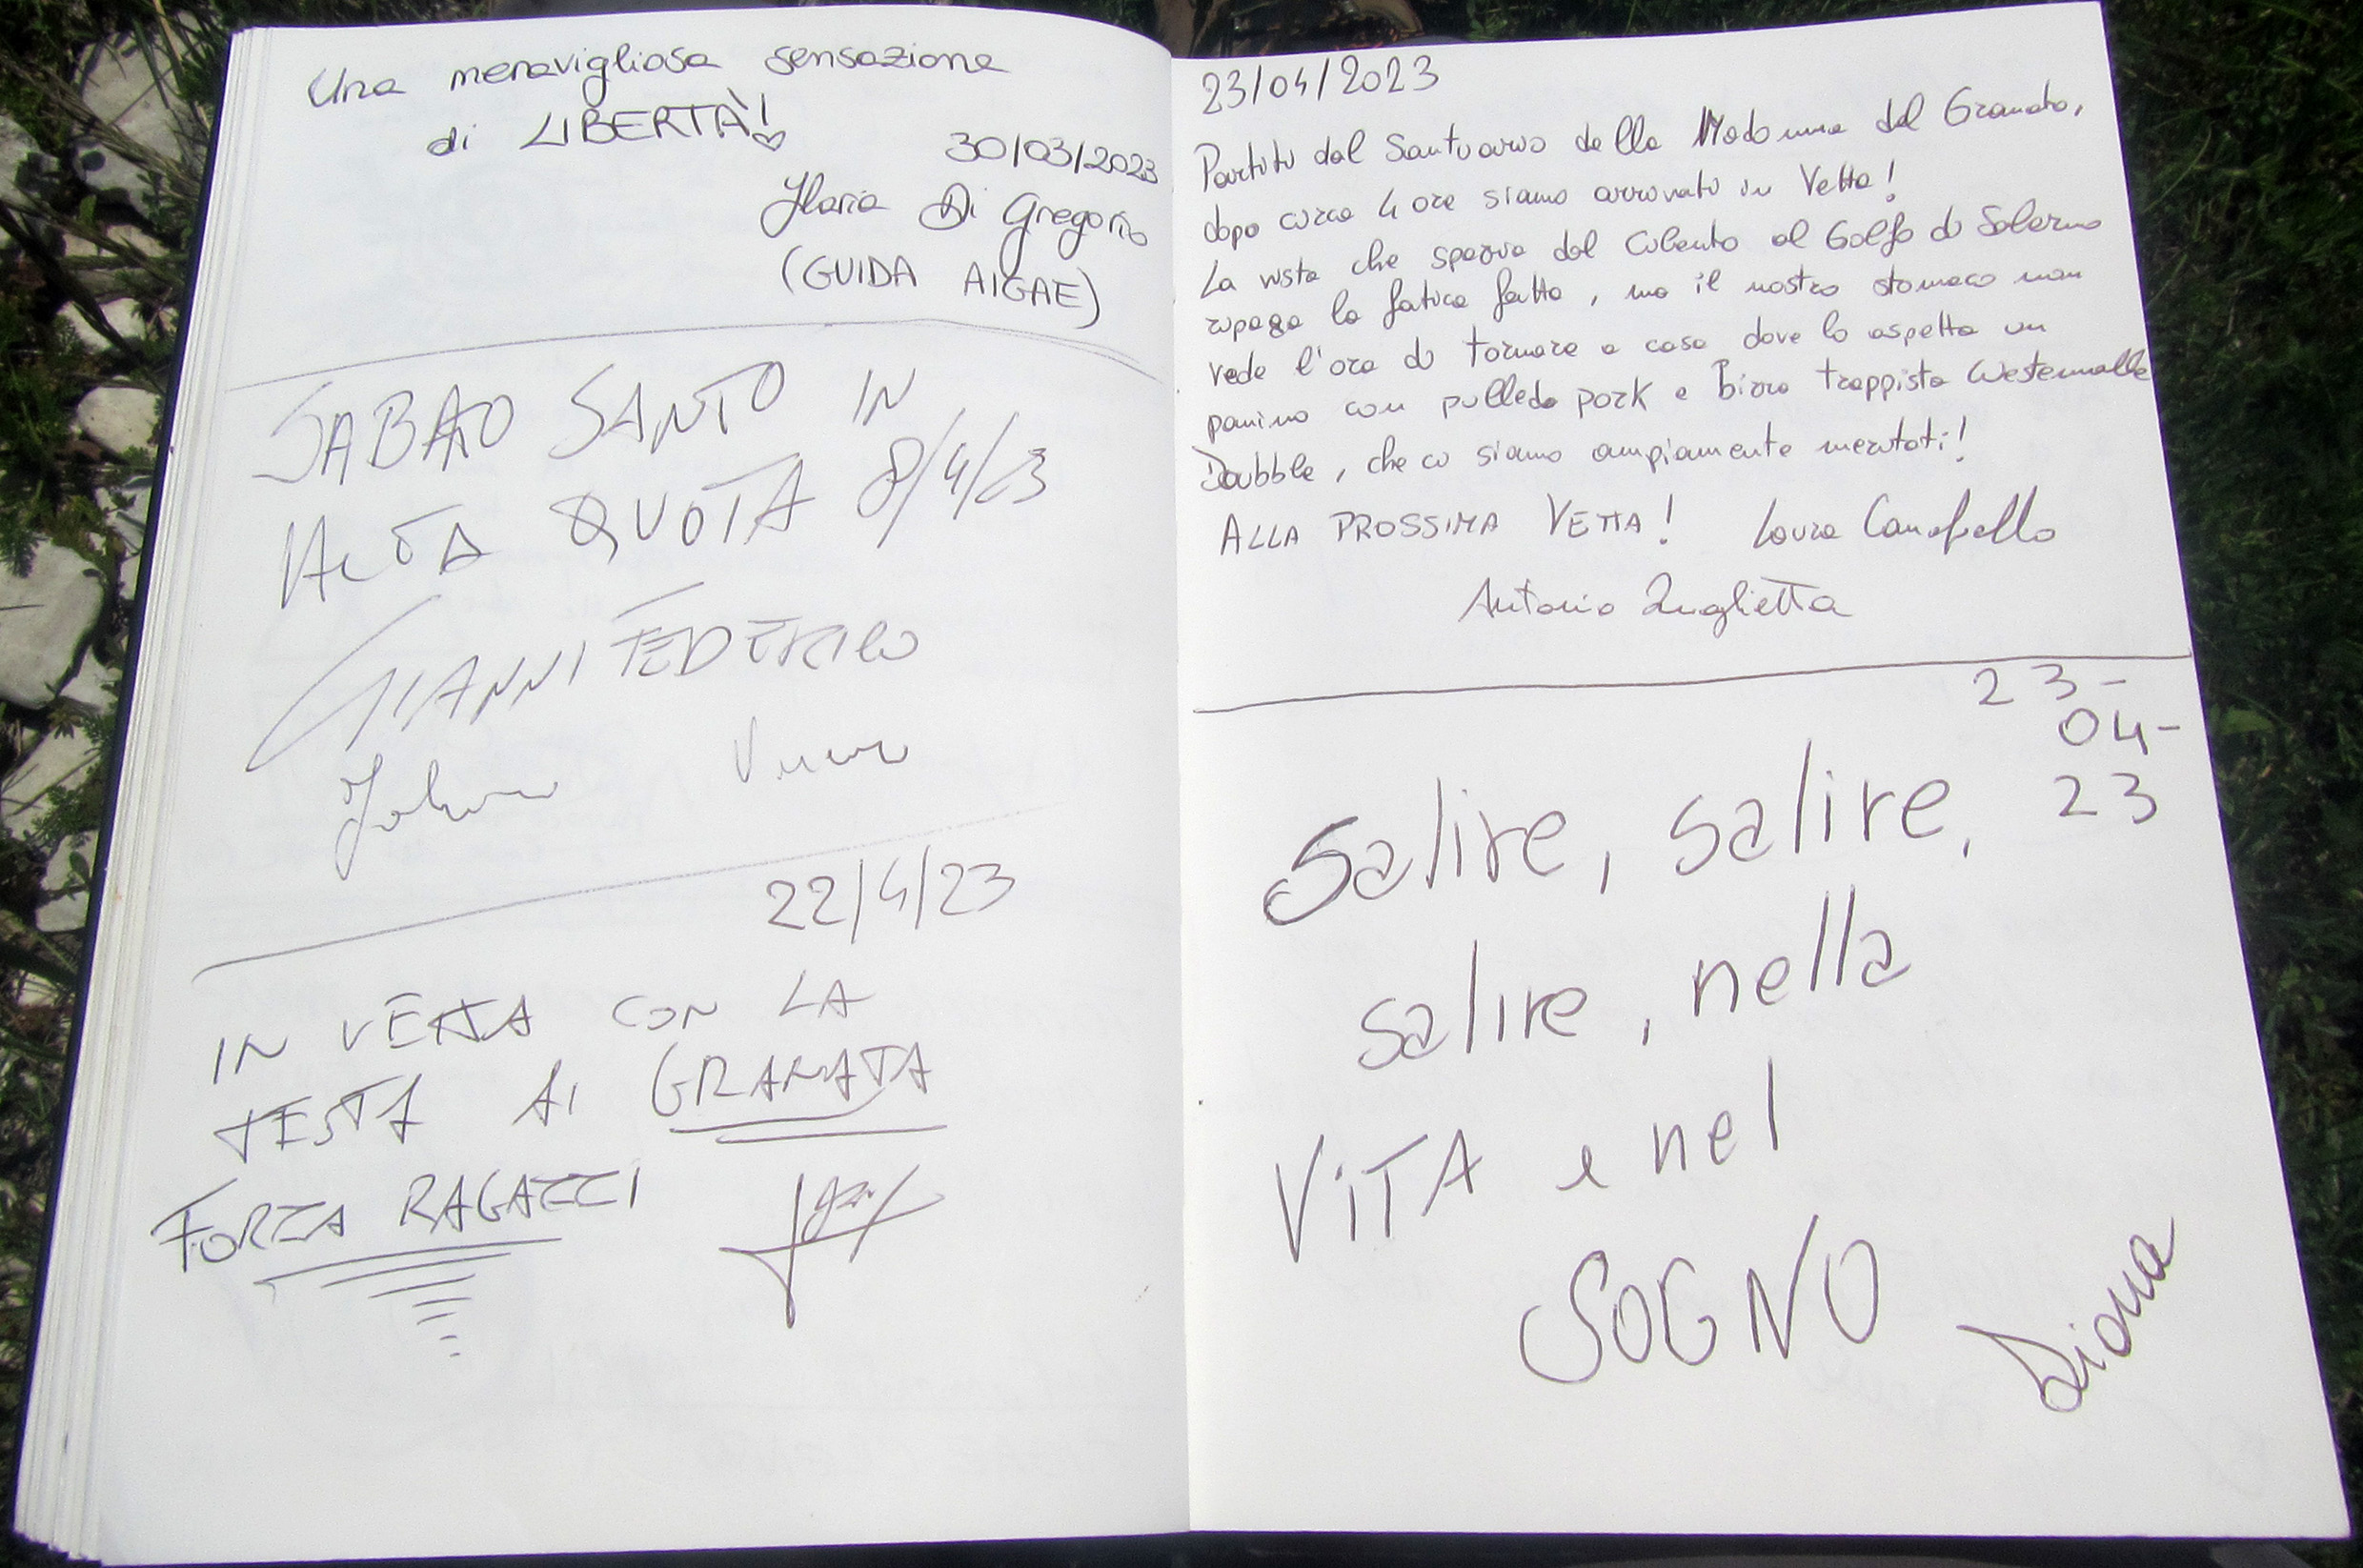 Una meravigliosa sensazione
di LIBERTÀ!
30/03/2023
Ilaria Di Gregorio
(GUIDA AIGAE)
SABATO SANTO IN
ALTA QUOTA 8/4/23
GIANNI FEDERICO
22/4/23
IN VETTA CON LA
TESTA AI GRANATA
FORZA RAGAZZI
23/04/2023
Partiti dal Santuario della Madonna del Granato,
dopo circa 4 ore siamo arrivati in Vetta!
La vista che spazia dal Cilento al Golfo di Salerno
ripaga la fatica fatta, ma il nostro stomaco non
vede l'ora di tornare a casa dove lo aspetta un
panino con pulled pork e Birra trappista Westmalle
Dubble, che ci siamo ampiamente meritati!
ALLA PROSSIMA VETTA! Laura
Antonio Inglietta
23-
04-
23
Salire, salire,
salire, nella
VITA e nel
SOGNO
Diana